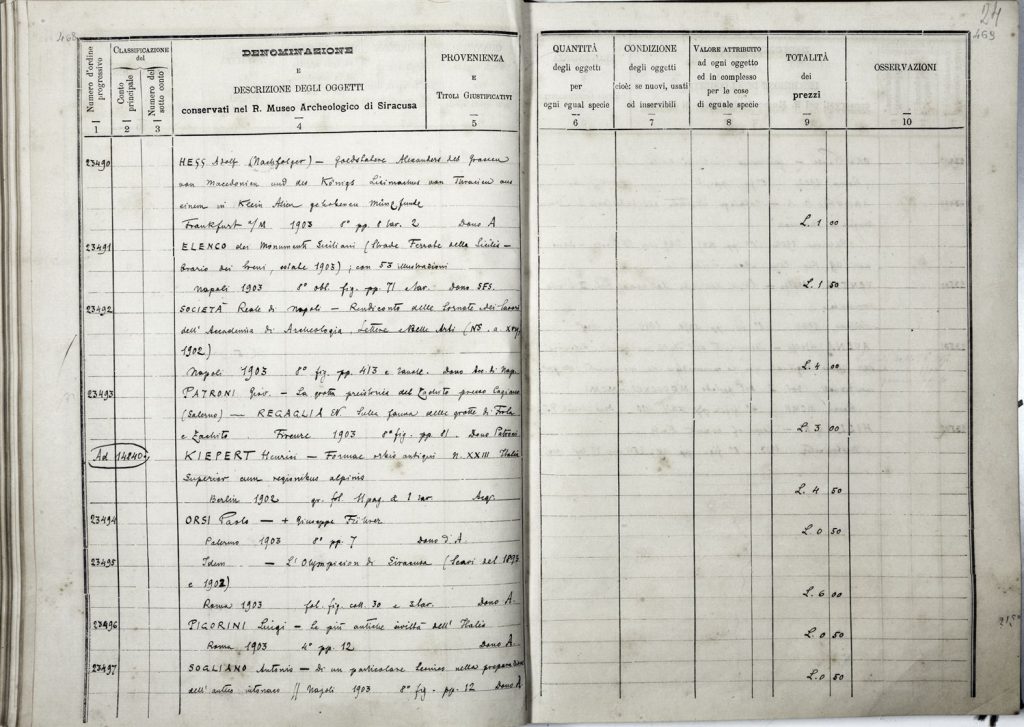 468
24
469
Numero d'ordine progressivo
CLASSIFICAZIONE
del
Conto principale
Numero del sotto conto
DENOMINAZIONE
E
DESCRIZIONE DEGLI OGGETTI
conservati nel R. Museo Archeologico di Siracusa
PROVENIENZA
E
TITOLI GIUSTIFICATIVI
QUANTITÀ
degli oggetti
per
ogni egual specie
CONDIZIONE
degli oggetti
cioè: se nuovi, usati
od inservibili
VALORE ATTRIBUITO
ad ogni oggetto
ed in complesso
per le cose
di eguale specie
TOTALITÀ
dei
prezzi
OSSERVAZIONI
1 2 3 4 5 6 7 8 9 10
23490 HESS Adolf (Nachfolger) — Goldstatere Alexanders des Grossen
von Macedonien und des Königs Lisimachus von Thracien aus
einem in Klein Asien gehobenen Münzfunde
Frankfurt a/M 1903 8° pp. 8 tav. 2 Dono A L. 1 00
23491 ELENCO dei Monumenti Siciliani (Strade Ferrate della Sicilia —
Orario dei treni, estate 1903); con 53 illustrazioni
Napoli 1903 8° obl. fig. pp. 71 e tav. Dono SFS. L. 1 50
23492 SOCIETÀ Reale di Napoli — Rendiconto delle Tornate dei lavori
dell'Accademia di Archeologia, Lettere e Belle Arti (NS. a.
1902)
Napoli 1903 8° fig. pp. 413 e tavole. Dono Acc. di Nap. L. 4 00
23493 PATRONI Giov. — La grotta preistorica del Zachito presso Caggiano
(Salerno) — REGAGLIA Sulla fauna delle grotte di Frola
e Zachito. Firenze 1903 8° fig. pp. 81. Dono Patroni L. 3 00
Ad 14840 KIEPERT Henrici — Formae orbis antiqui n. XXIII Italia
Superior cum regionibus alpinis
Berlin 1902 gr. fol. 11 pag. & 1 tav Acq. L. 4 50
23494 ORSI Paolo — + Giuseppe Führer
Palermo 1903 8° pp. 7 Dono d'A. L. 0 50
23495 Idem — L'Olympieion di Siracusa (Scavi del 1893
e 1902)
Roma 1903 fol. fig. coll. 30 e 3 tav. Dono A. L. 6 00
23496 PIGORINI Luigi — Le più antiche civiltà dell'Italia
Roma 1903 4° pp. 12 Dono A L. 0 50
23497 SOGLIANO Antonio — Di un particolare tecnico nella preparazione
dell'antico intonaco // Napoli 1903 8° fig. pp. 12 Dono A L. 0 50